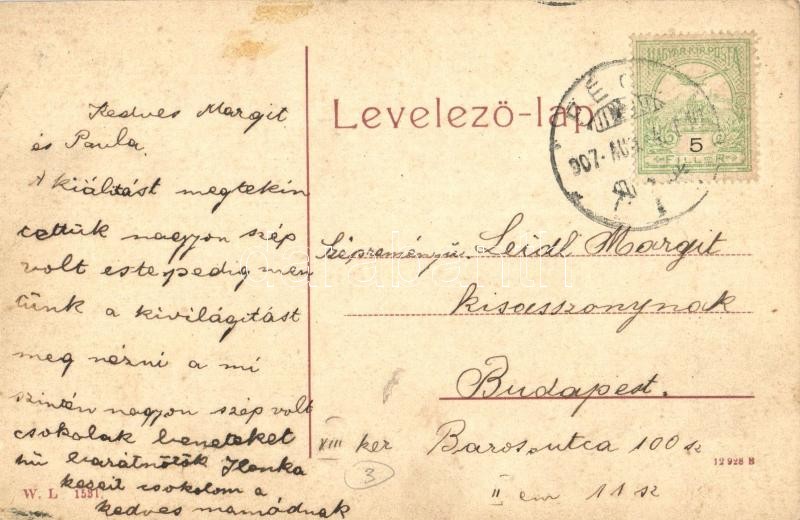 Kedves Margit
és Paula.
A kiálitást megtekin
tettük nagyon szép
volt este pedig men
tünk a kivilágitást
meg nézni a mi
szintén nagyon szép volt
csokolak beneteket
hü barátnötök Ilonka
kezeit csokolom a
kedves mamádnak
W. L 1531.
Levelezö-lap
MAGYAR KIR. POSTA
5
FILLÉR
PÉCS
907. AUG.
Szépreményü. Leidl Margit
kisasszonynak
Budapest.
VIII ker Baross utca 100 sz
II em 11 sz
3
12 928 B
darabanth